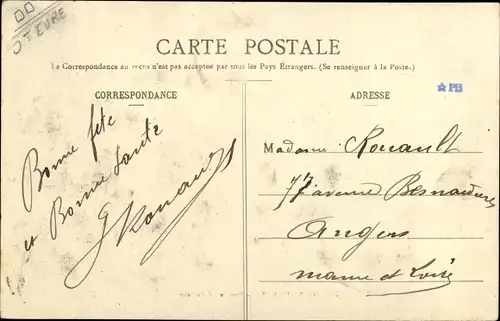 DT EURE
CARTE POSTALE
La Correspondance au recto n'est pas acceptée par tous les Pays Étrangers. (Se renseigner à la Poste.)
CORRESPONDANCE
Bonne fête
et Bonne Santé
ADRESSE
PB
Madame Rouault
77 avenue Besnardière
Angers
Maine et Loire